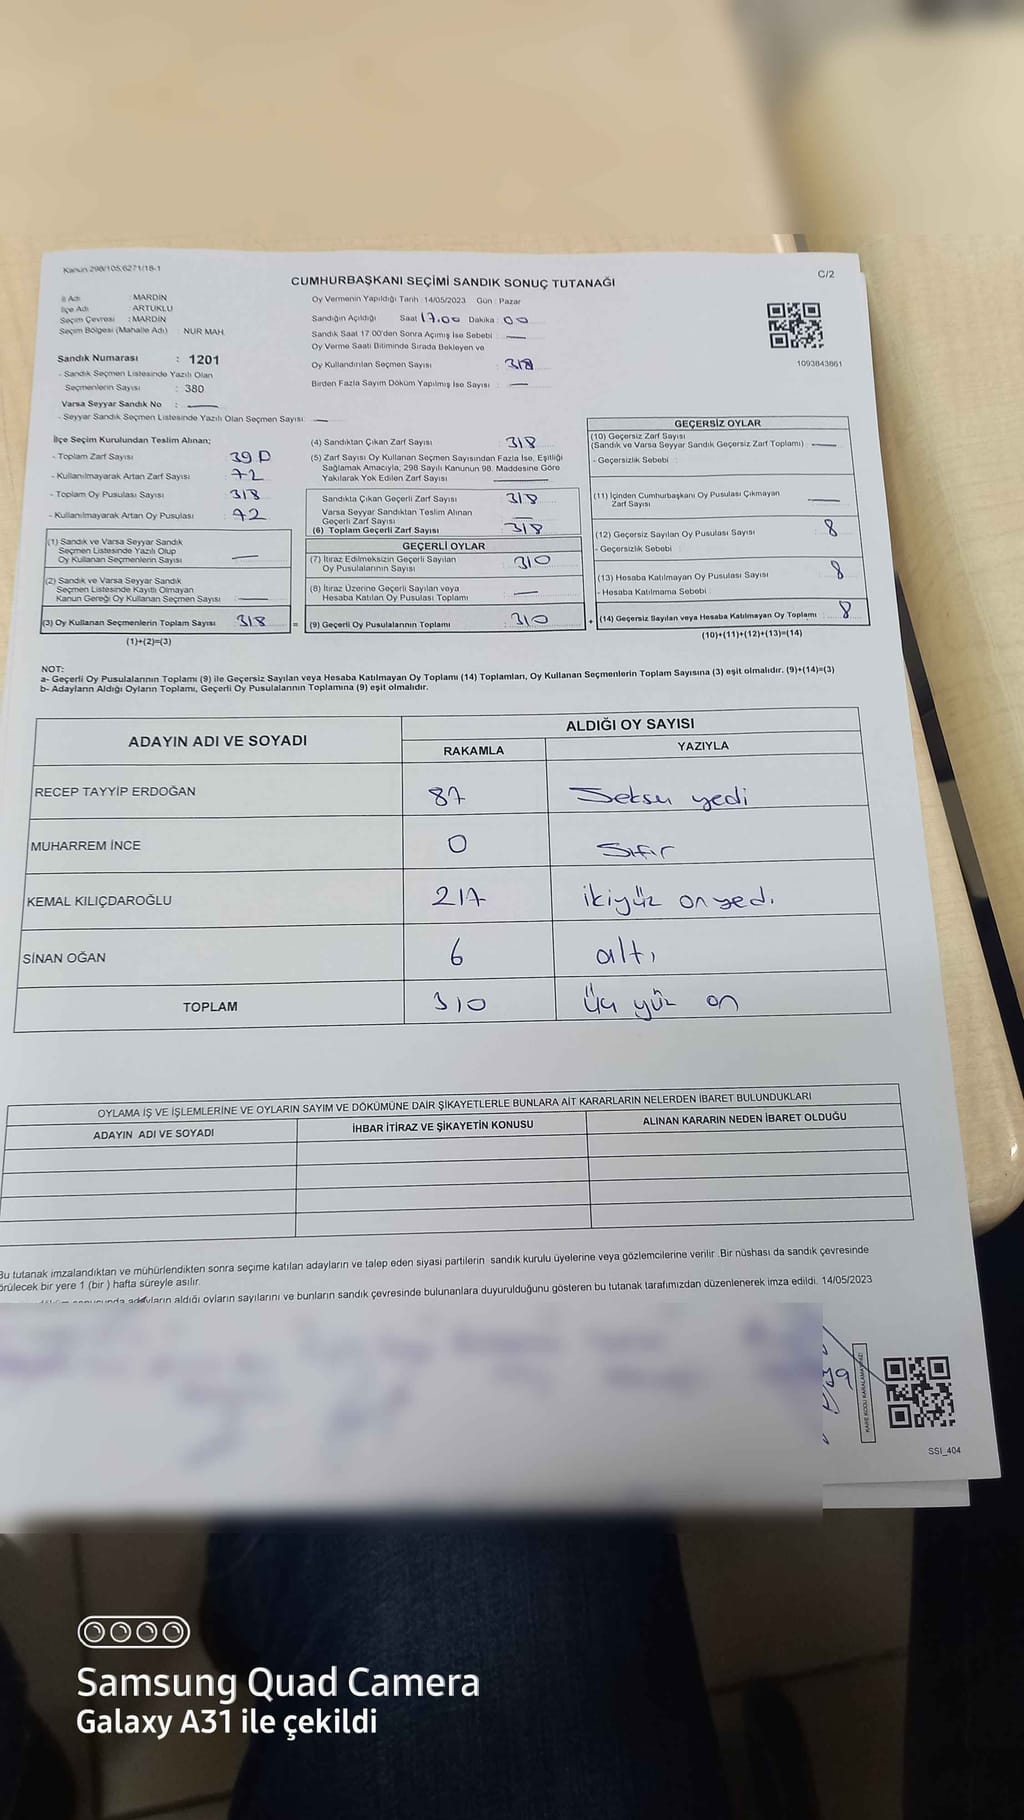 Kanun 298/105,6271/18-1
C/2
CUMHURBAŞKANI SEÇİMİ SANDIK SONUÇ TUTANAĞI
İl Adı : MARDİN
İlçe Adı : ARTUKLU
Seçim Çevresi : MARDİN
Seçim Bölgesi (Mahalle Adı) : NUR MAH.
Sandık Numarası : 1201
- Sandık Seçmen Listesinde Yazılı Olan
Seçmenlerin Sayısı : 380
Varsa Seyyar Sandık No :
- Seyyar Sandık Seçmen Listesinde Yazılı Olan Seçmen Sayısı:
Oy Vermenin Yapıldığı Tarih : 14/05/2023 Gün : Pazar
Sandığın Açıldığı Saat 17.00 Dakika : 00
Sandık Saat 17:00'den Sonra Açımış İse Sebebi :
Oy Verme Saati Bitiminde Sırada Bekleyen ve
Oy Kullandırılan Seçmen Sayısı : 318
Birden Fazla Sayım Döküm Yapılmış İse Sayısı :
1093843861
İlçe Seçim Kurulundan Teslim Alınan;
- Toplam Zarf Sayısı
- Kullanılmayarak Artan Zarf Sayısı 72
- Toplam Oy Pusulası Sayısı 318
- Kullanılmayarak Artan Oy Pusulası 72
(1) Sandık ve Varsa Seyyar Sandık
Seçmen Listesinde Yazılı Olup
Oy Kullanan Seçmenlerin Sayısı
(2) Sandık ve Varsa Seyyar Sandık
Seçmen Listesinde Kayıtlı Olmayan
Kanun Gereği Oy Kullanan Seçmen Sayısı
(3) Oy Kullanan Seçmenlerin Toplam Sayısı 318 =
(1)+(2)=(3)
(4) Sandıktan Çıkan Zarf Sayısı : 318
(5) Zarf Sayısı Oy Kullanan Seçmen Sayısından Fazla İse, Eşitliği
Sağlamak Amacıyla; 298 Sayılı Kanunun 98. Maddesine Göre
Yakılarak Yok Edilen Zarf Sayısı
Sandıkta Çıkan Geçerli Zarf Sayısı 318
Varsa Seyyar Sandıktan Teslim Alınan
Geçerli Zarf Sayısı
(6) Toplam Geçerli Zarf Sayısı 318
GEÇERLİ OYLAR
(7) İtiraz Edilmeksizin Geçerli Sayılan
Oy Pusulalarının Sayısı 310
(8) İtiraz Üzerine Geçerli Sayılan veya
Hesaba Katılan Oy Pusulası Toplamı
(9) Geçerli Oy Pusulalarının Toplamı 310 +
GEÇERSİZ OYLAR
(10) Geçersiz Zarf Sayısı
(Sandık ve Varsa Seyyar Sandık Geçersiz Zarf Toplamı)
- Geçersizlik Sebebi :
(11) İçinden Cumhurbaşkanı Oy Pusulası Çıkmayan
Zarf Sayısı
(12) Geçersiz Sayılan Oy Pusulası Sayısı 8
- Geçersizlik Sebebi :
(13) Hesaba Katılmayan Oy Pusulası Sayısı 8
- Hesaba Katılmama Sebebi :
(14) Geçersiz Sayılan veya Hesaba Katılmayan Oy Toplamı : 8
(10)+(11)+(12)+(13)=(14)
NOT:
a- Geçerli Oy Pusulalarının Toplamı (9) ile Geçersiz Sayılan veya Hesaba Katılmayan Oy Toplamı (14) Toplamları, Oy Kullanan Seçmenlerin Toplam Sayısına (3) eşit olmalıdır. (9)+(14)=(3)
b- Adayların Aldığı Oyların Toplamı, Geçerli Oy Pusulalarının Toplamına (9) eşit olmalıdır.
ADAYIN ADI VE SOYADI
ALDIĞI OY SAYISI
RAKAMLA YAZIYLA
RECEP TAYYİP ERDOĞAN 87 Seksen yedi
MUHARREM İNCE 0 Sıfır
KEMAL KILIÇDAROĞLU 217 ikiyüz onyedi
SİNAN OĞAN 6 altı
TOPLAM 310 Üç yüz on
OYLAMA İŞ VE İŞLEMLERİNE VE OYLARIN SAYIM VE DÖKÜMÜNE DAİR ŞİKAYETLERLE BUNLARA AİT KARARLARIN NELERDEN İBARET BULUNDUKLARI
ADAYIN ADI VE SOYADI İHBAR İTİRAZ VE ŞİKAYETİN KONUSU ALINAN KARARIN NEDEN İBARET OLDUĞU
Bu tutanak imzalandıktan ve mühürlendikten sonra seçime katılan adayların ve talep eden siyasi partilerin sandık kurulu üyelerine veya gözlemcilerine verilir .Bir nüshası da sandık çevresinde
örülecek bir yere 1 (bir ) hafta süreyle asılır.
sonucunda adayların aldığı oyların sayılarını ve bunların sandık çevresinde bulunanlara duyurulduğunu gösteren bu tutanak tarafımızdan düzenlenerek imza edildi. 14/05/2023
KARE KODU KARALAMAYINIZ!
SSI_404
Samsung Quad Camera
Galaxy A31 ile çekildi